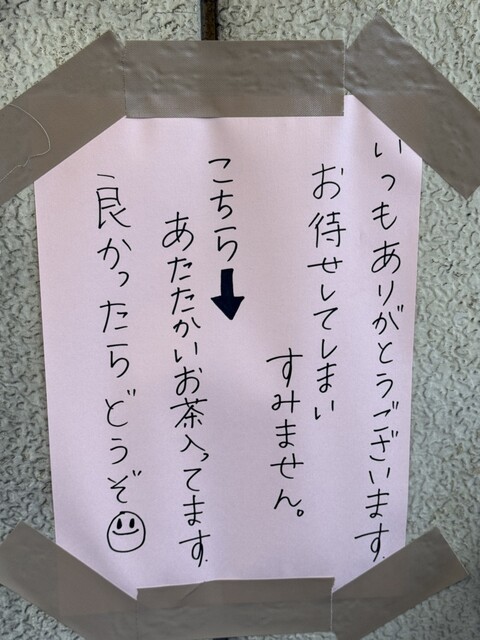 いつもありがとうございます
お待せしてしまい
すみません。
こちら↓
あたたかいお茶入ってます
良かったらどうぞ